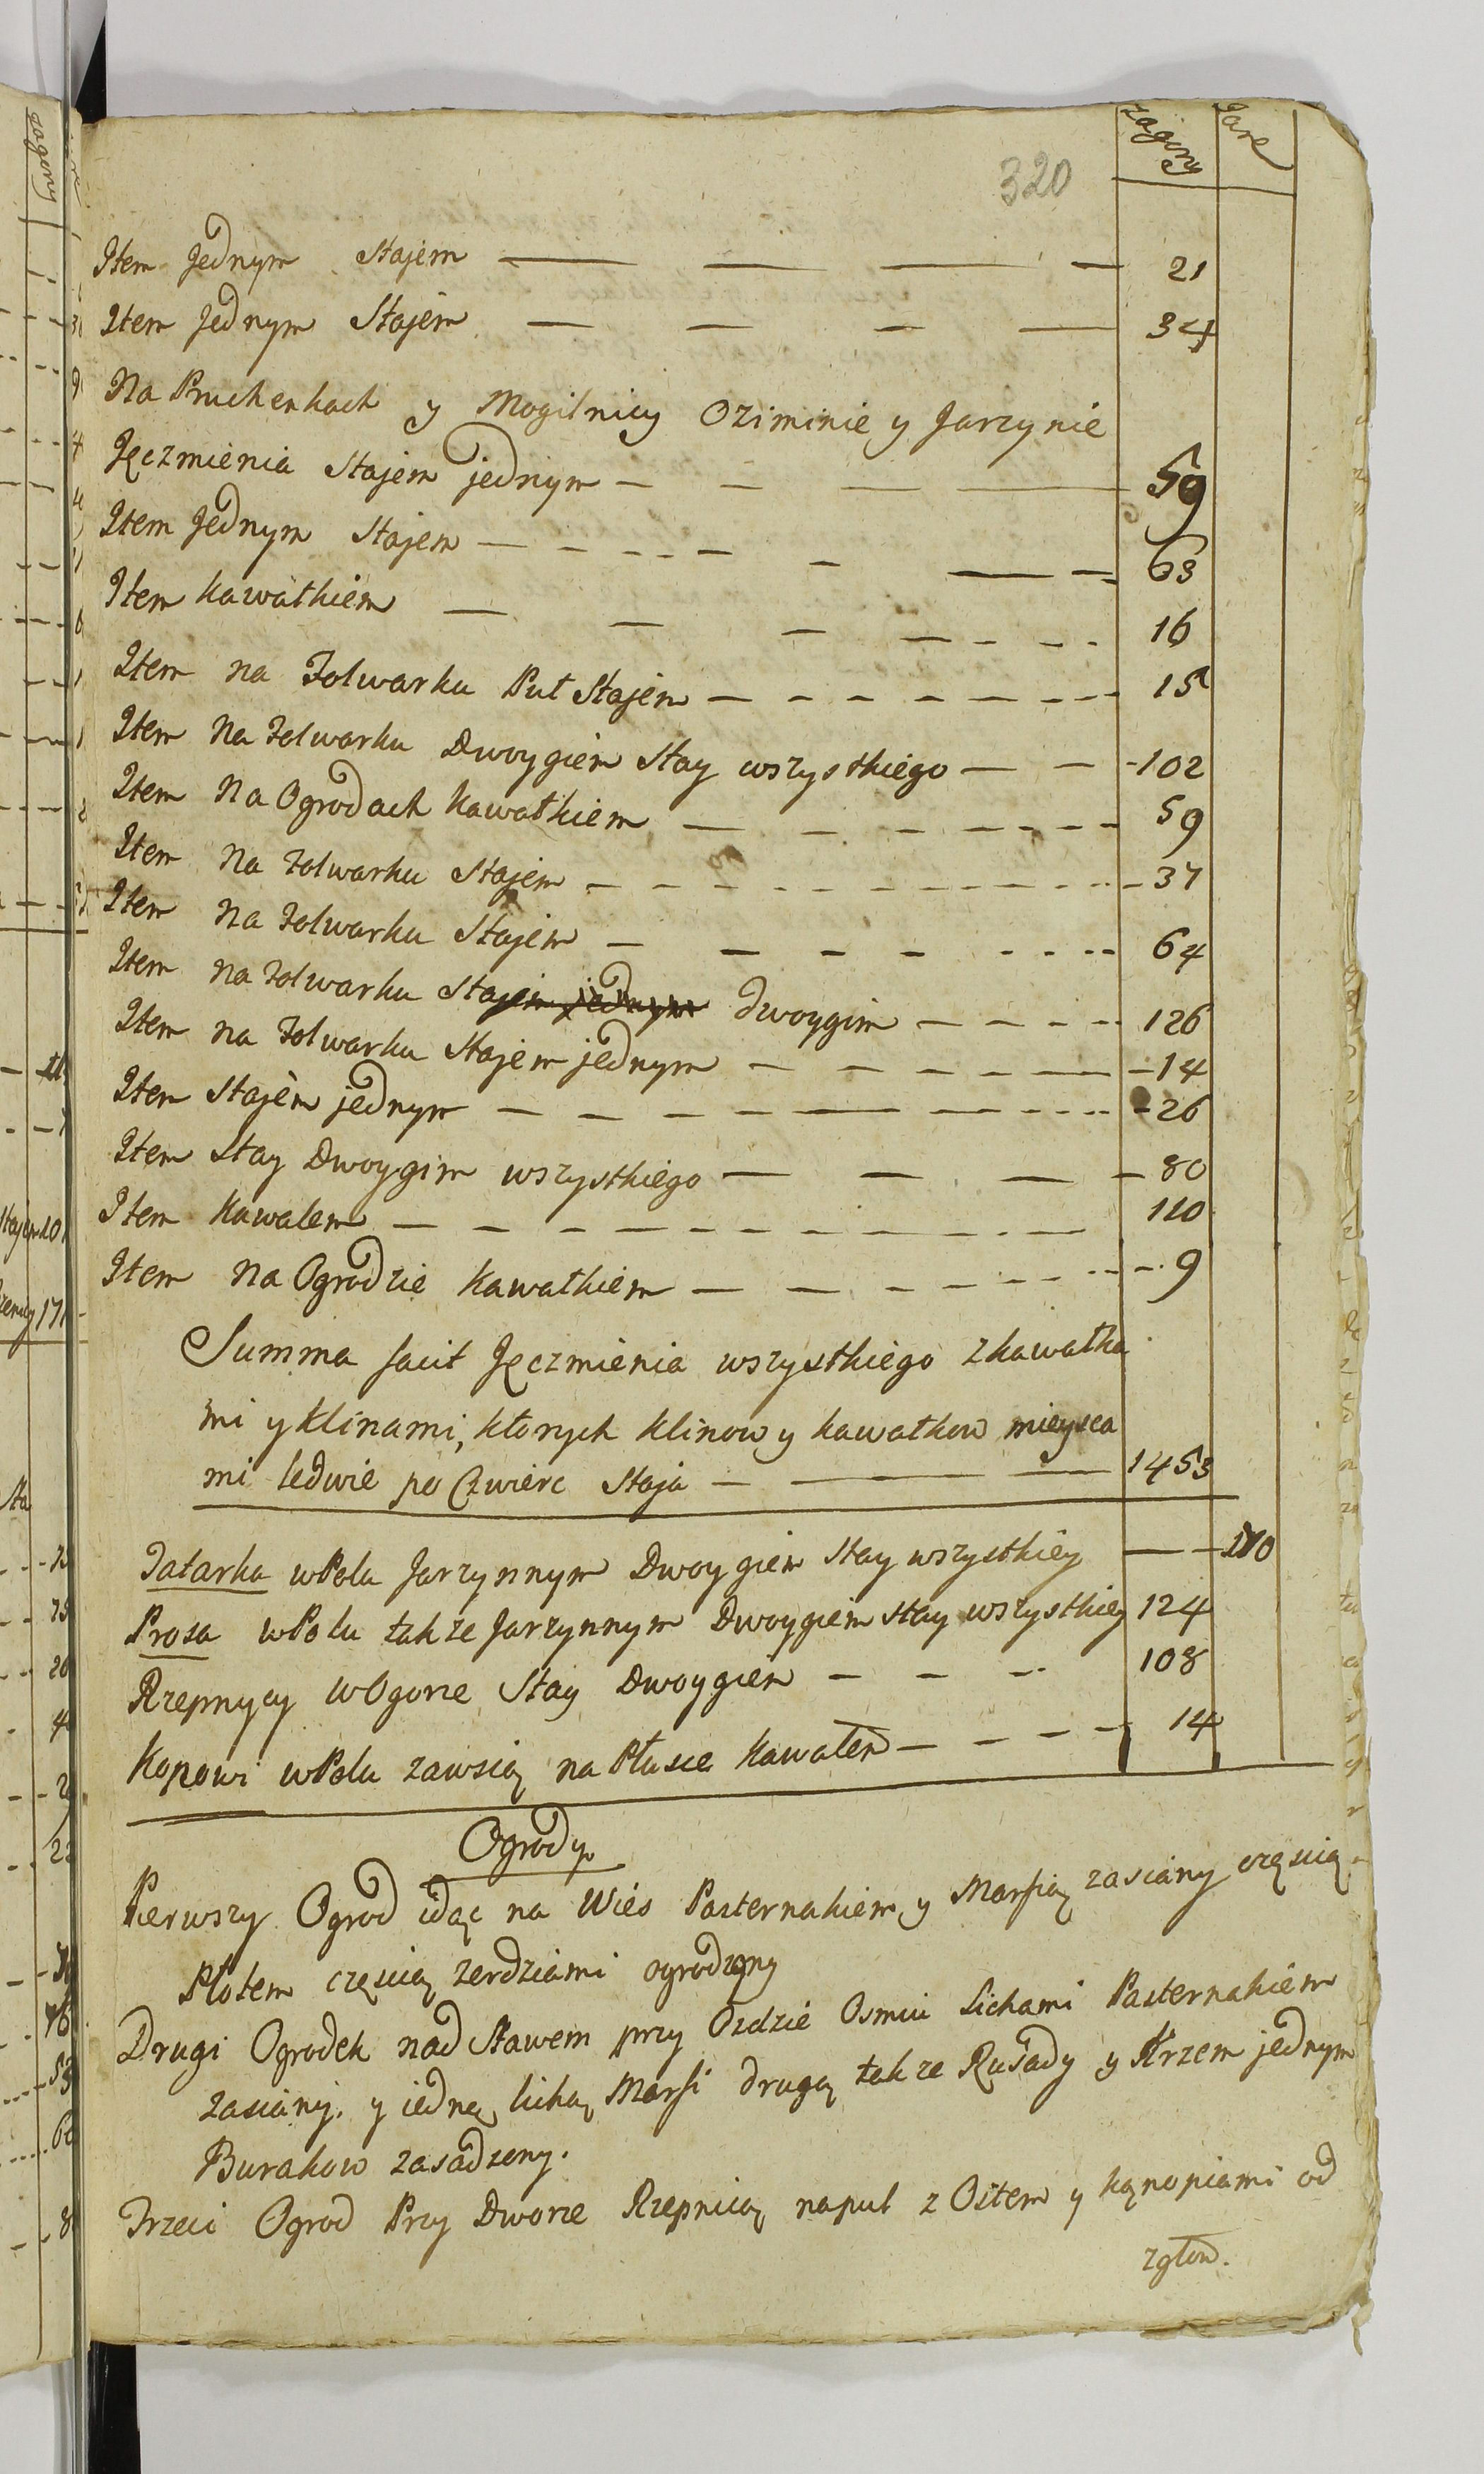 zagony Jare
320
Item Jednym Stajem 21
Item Jednym Stajem 34
Na Pruchenkach y Mogilnicy Oziminie y Jarzynie
Jęczmienia Stajem jednym 59
Item Jednym Stajem 63
Item kawałkiem 16
Item na Folwarku Puł Stajem 15
Item na Folwarku Dwoygiem Stay wszystkiego 102
Item na Ogrodach kawałkiem 59
Item na Folwarku Stajem 37
Item na Folwarku Stajem 64
Item na Folwarku Stajem jednym dwoygim 126
Item na Folwarku Stajem jednym 14
Item Stajem jednym 26
Item Stay Dwoygim wszystkiego 80
Item Kawalem 110
Item na Ogrodzie kawałkiem 9
Summa facit Jęczmienia wszystkiego z kawałka
mi y klinami, ktorych klinow y kawałkow mieysca
mi ledwie po Czwierc Staja 1453
Tatarka w Polu Jarzynnym Dwoygiem Stay wszystkiey 170
Prosa w Polu także Jarzynnym Dwoygiem stay wszystkiey 124
Rzepnycy w Ogorze Stay Dwoygiem 108
Konowi w Polu zawsią na Płusie Kawałem 14
Ogrody
Pierwszy Ogrod idąc na Wies Pasternakiem y Marfią zasiany częscią
Płotem częscią zerdziami ogrodzony
Drugi Ogrodek nad Stawem przy Ozdzie Osmiu lichami Pasternakiem
zasiany. y iedną lichą Marfi drugą także Rusady y Krzem jednym
Burakow zasadzony.
Trzeci Ogrod Przy Dworze Rzepnicą napuł z Ostem y kąnopiami od